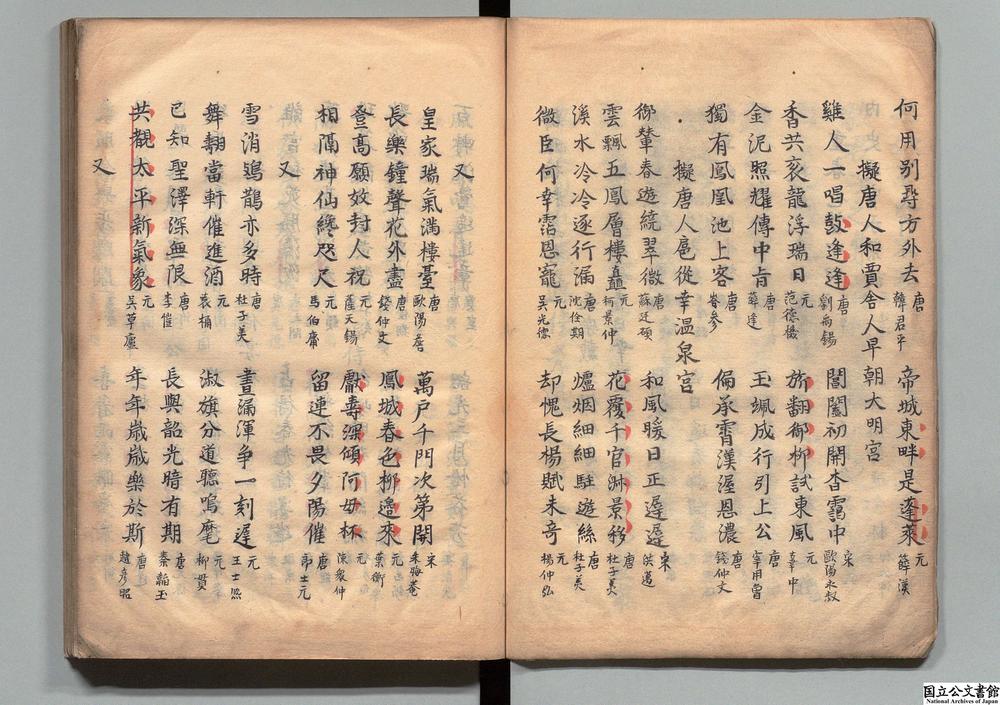 何用别尋方外去 唐 韓君平 帝城東畔是蓬萊 元 薛漢
擬唐人和賈舍人早朝大明宮
雞人一唱鼓逢逢 唐 劉禹錫 閶闔初開杳靄中 宋 歐陽永叔
香共袞龍浮瑞日 元 范德機 旂翻御柳試東風 元
金泥照耀傳中旨 唐 薛逢 玉珮成行引上公 唐 竇用曾
獨有鳳凰池上客 唐 岑參 偏承霄漢渥恩濃 唐 錢仲文
擬唐人扈從幸溫泉宮
御輦春遊繞翠微 唐 蘇廷碩 和風暖日正遲遲 宋 洪邁
雲飄五鳳層樓矗 元 柯景仲 花覆千官淑景移 唐 杜子美
溪水泠泠逐行漏 唐 沈佺期 爐烟細細駐遊絲 唐 杜子美
微臣何幸霑恩寵 元 吳光德 却愧長楊賦未奇 元 楊仲弘
又
皇家瑞氣滿樓臺 唐 歐陽詹 萬戶千門次第開 宋 朱晦菴
長樂鐘聲花外盡 唐 錢仲文 鳳城春色柳邊來 元 葉衡
登高願效封人祝 元 薩天錫 獻壽深傾阿母杯 元 陳衆仲
相隔神仙纔咫尺 元 馬伯庸 留連不畏夕陽催 唐 郎士元
又
雪消鳷鵲亦多時 唐 杜子美 晝漏渾爭一刻遲 元 王士熙
舞翻當軒催進酒 元 袁桷 淑旗分道聽鳴麾 元 柳貫
已知聖澤深無限 唐 李愷 長與韶光暗有期 唐 秦韜玉
共觀太平新氣象 元 吳草廬 年年歲歲樂於斯 唐 趙彥昭
又
国立公文書館
National Archives of Japan